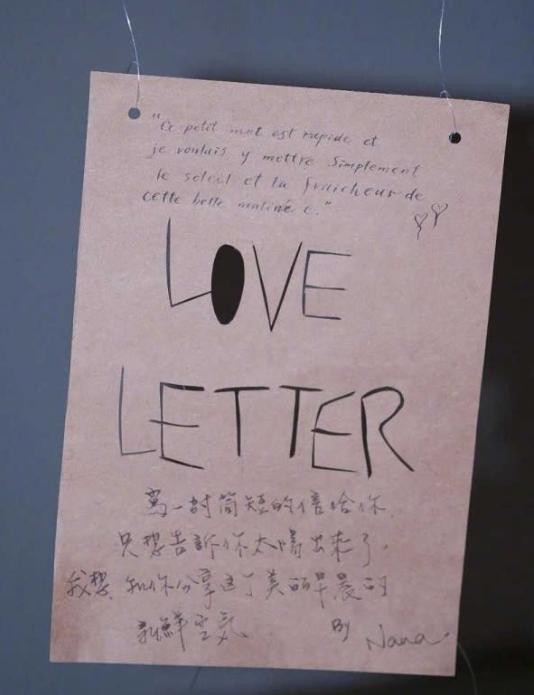 "Ce petit mot est rapide et
je voulais y mettre simplement
le soleil et la fraicheur de
cette belle matinée."
LOVE
LETTER
寫一封簡短的信給你,
只想告訴你太陽出來了,
我想,和你分享這了美丽早晨的
新鮮空氣
By Nana.